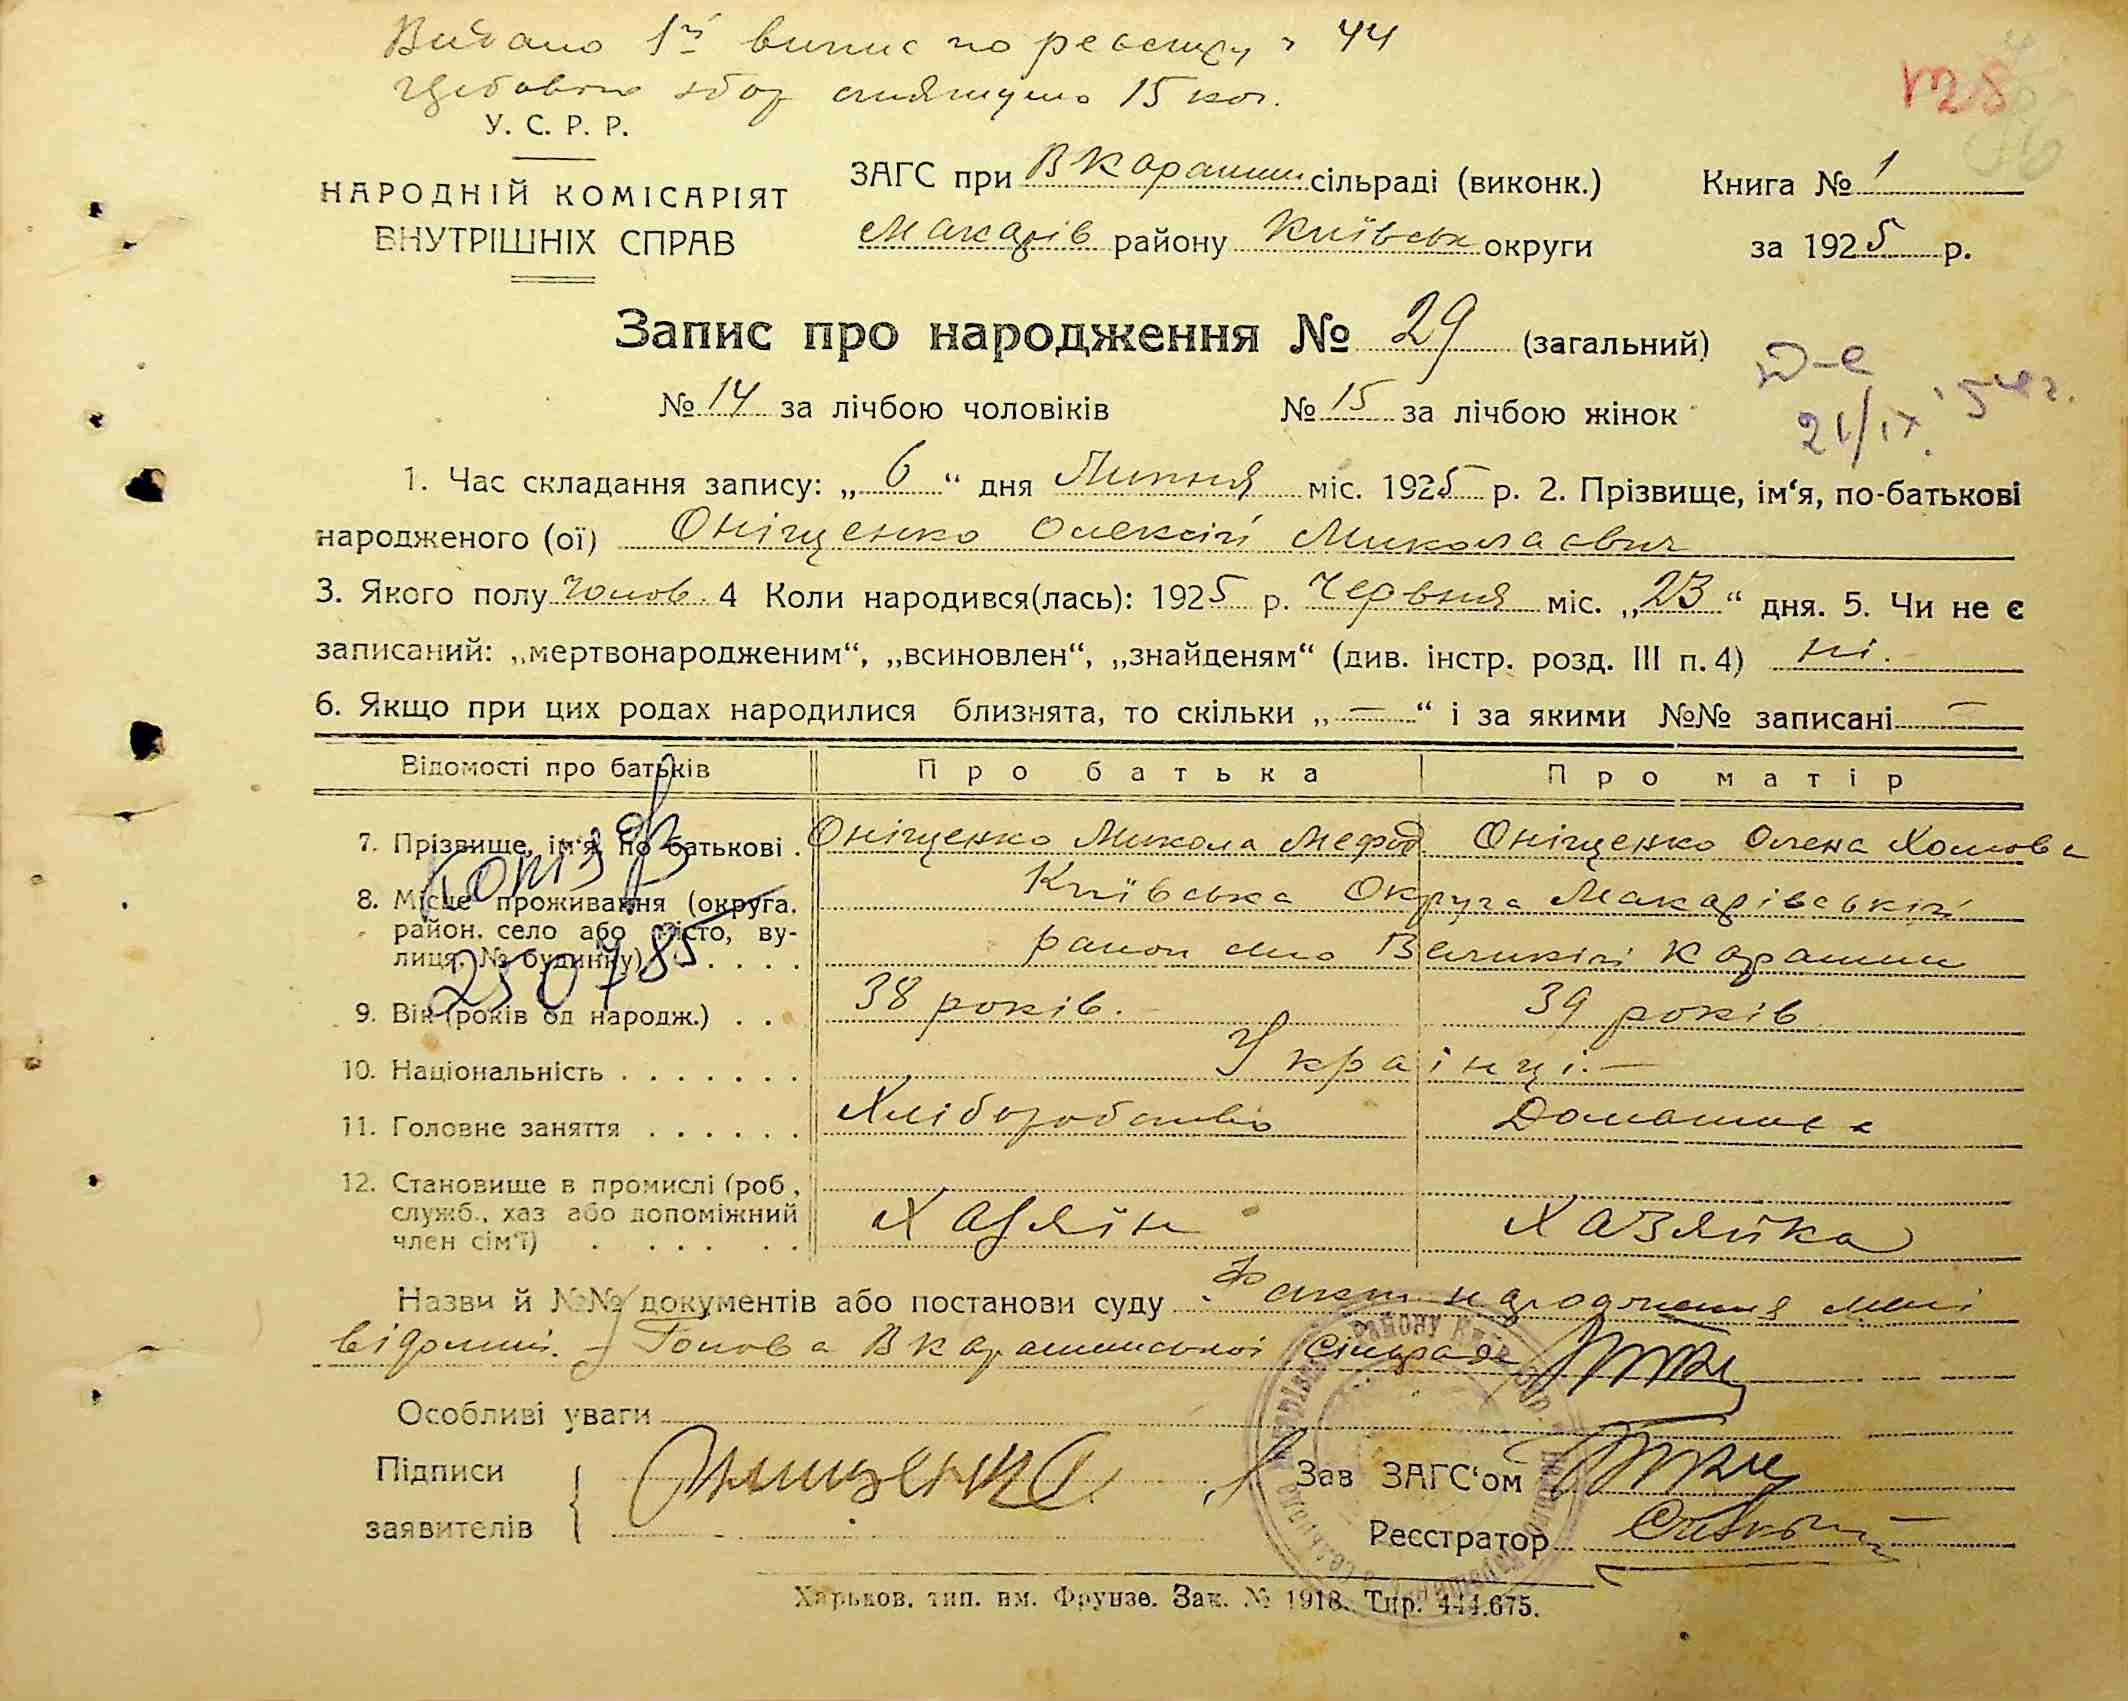 Видано 1й випис по реєстру 44
збор стягнуто 15 коп.
128
У. С. Р. Р.
НАРОДНІЙ КОМІСАРІЯТ
ВНУТРІШНІХ СПРАВ
ЗАГС при В Карашин сільраді (виконк.)
Макарів району Київськ округи
Книга № 1
за 1925 р.
Запис про народження № 29 (загальний)
№ 14 за лічбою чоловіків № 15 за лічбою жінок
21/IX. 54 г.
1. Час складання запису: „6“ дня Липня міс. 1925 р. 2. Прізвище, ім‘я, по-батькові
народженого (ої) Оніщенко Олексій Миколаєвич
3. Якого полу Чолов. 4 Коли народився(лась): 1925 р. Червня міс. „23“ дня. 5. Чи не є
записаний: „мертвонародженим“, „всиновлен“, „знайденям“ (див. інстр. розд. III п. 4) ні.
6. Якщо при цих родах народилися близнята, то скільки „—“ і за якими №№ записані —
Відомості про батьків Про батька Про матір
7. Прізвище, ім‘я, по батькові . Оніщенко Микола Мефод Оніщенко Олена Хомовa
8. Місце проживання (округа, район, село або місто, вулиця, № будинку) . . . .
Київська Округа Макарівській
район село Великій Карашин
250785
9. Вік (років од народж.) . . 38 років. 39 років
10. Національність . . . . . . . Українці. —
11. Головне заняття . . . . . . Хліборобство Домашнє
12. Становище в промислі (роб., служб., хаз або допоміжний член сім‘ї) . . . . . . Хазяїн Хазяйка
Назви й №№ документів або постанови суду Факт народження мені
відомий. — Голова В Карашинської Сільради
Особливі уваги
Підписи
заявителів
Онищенко
Зав ЗАГС‘ом
Реєстратор
Харьков. тип. им. Фрунзе. Зак. № 1918. Тир. 444.675.